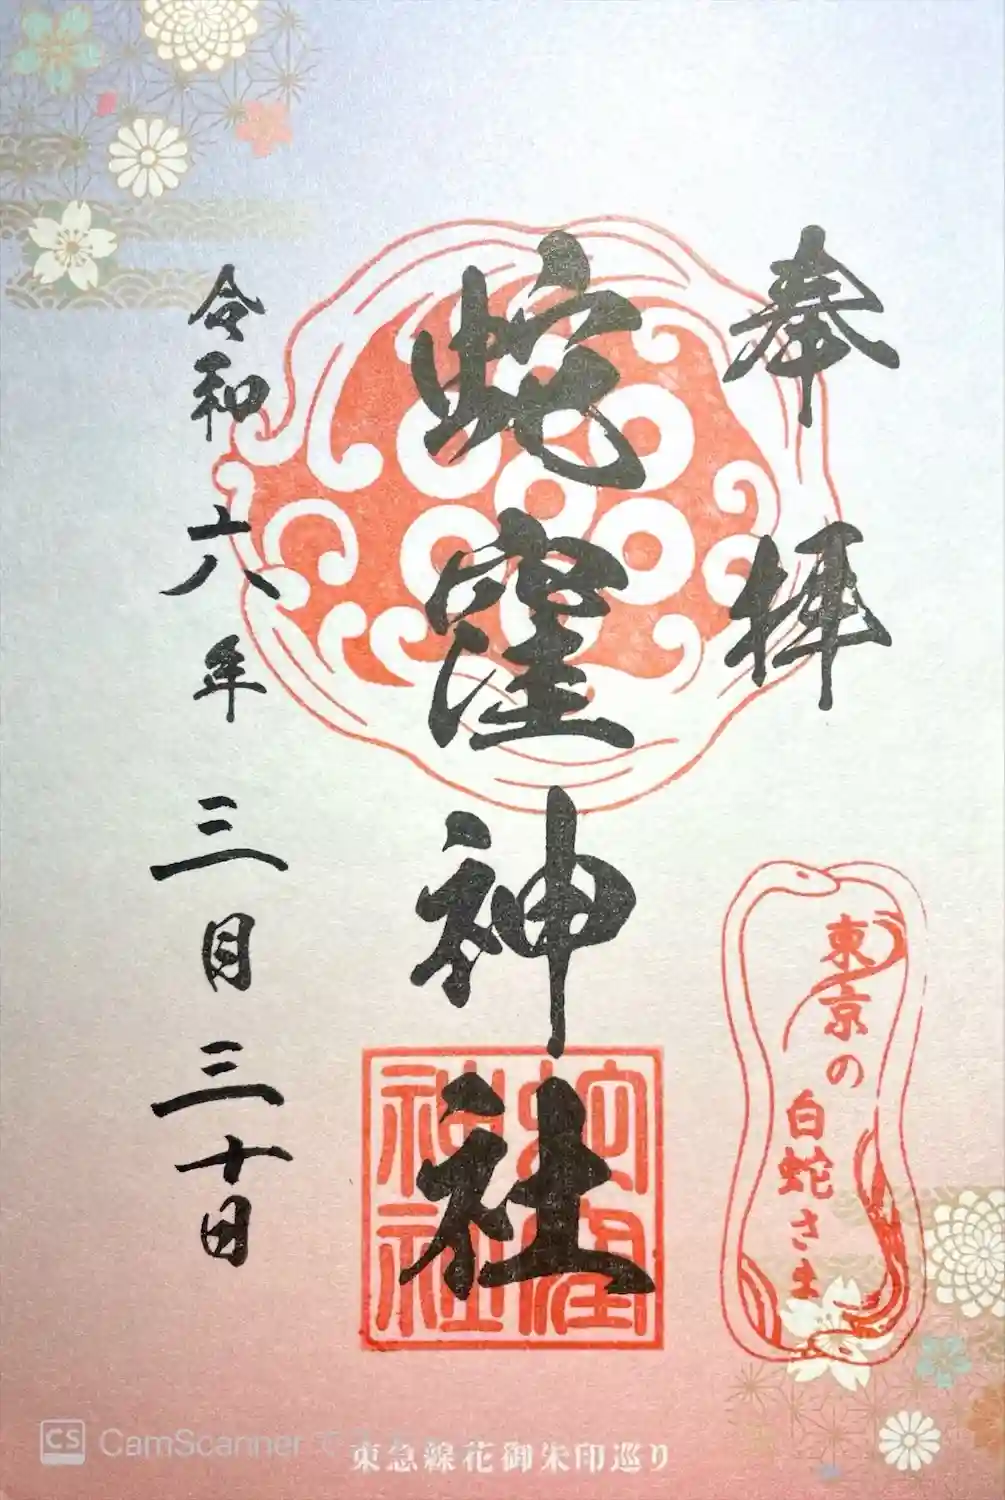 奉拝
東京の
白蛇さま
蛇窪神社
蛇窪
神社
令和六年三月三十日
CS CamScanner で
東急線花御朱印巡り